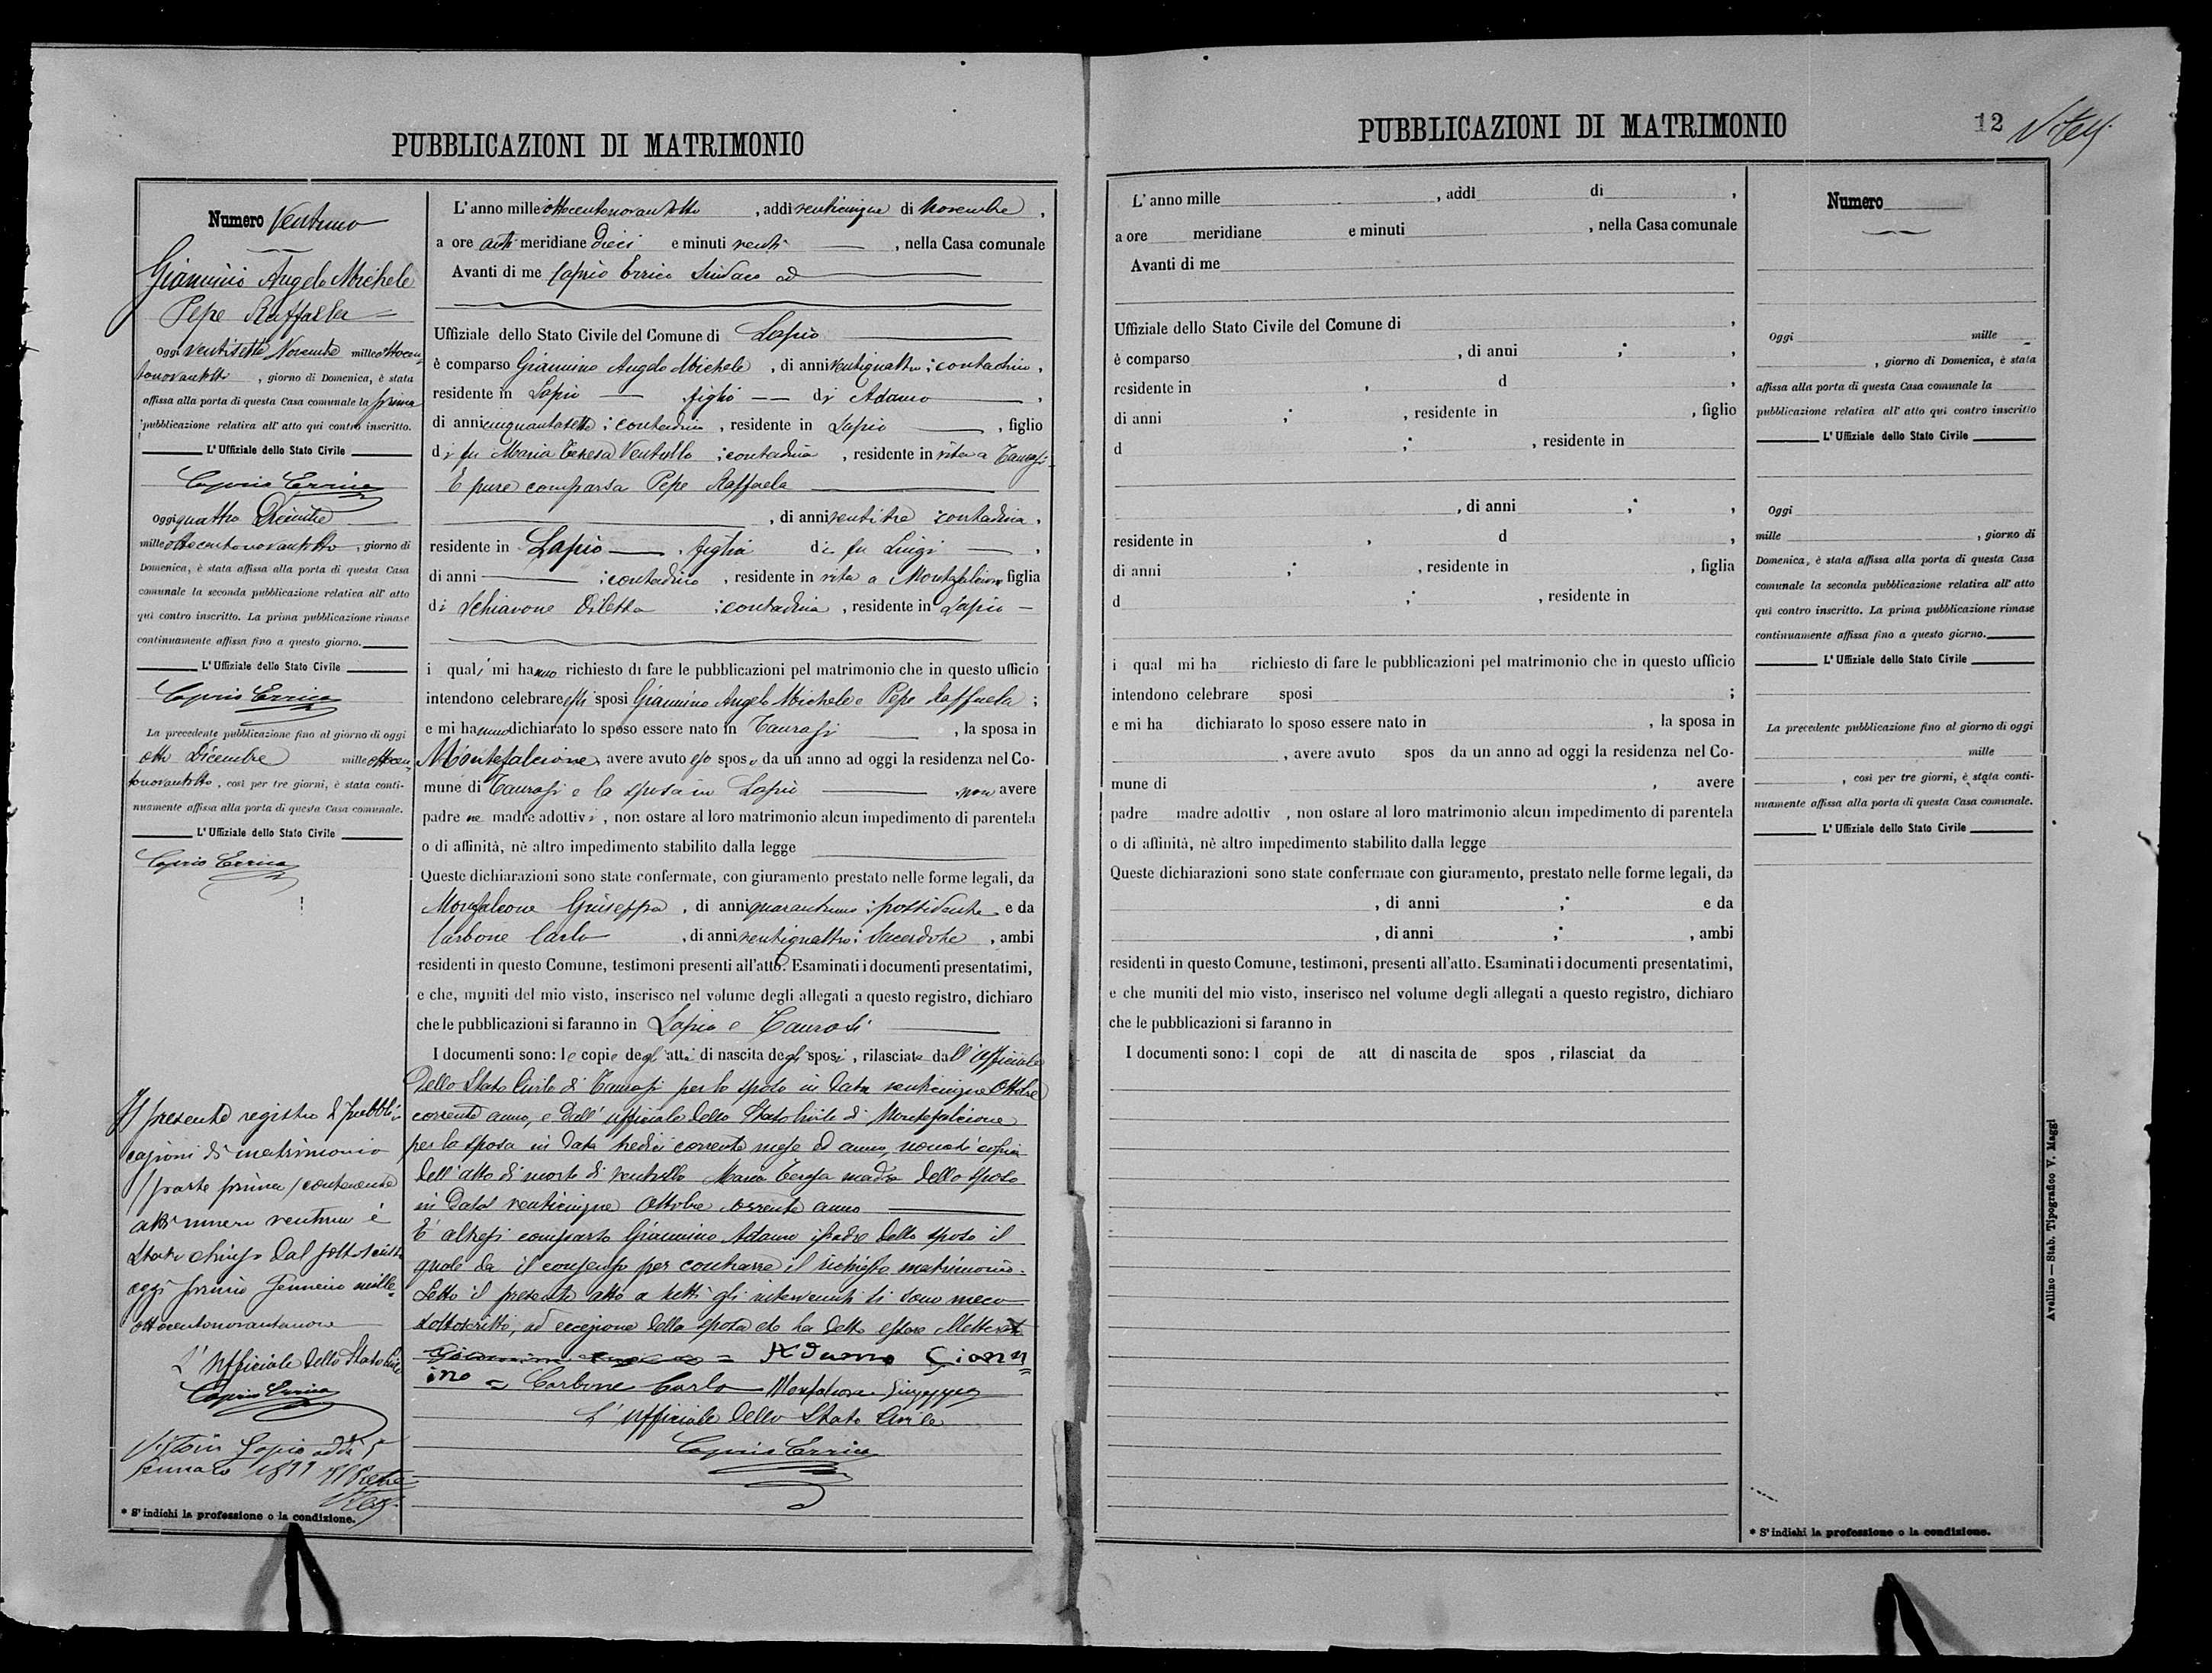 PUBBLICAZIONI DI MATRIMONIO
Numero Ventuno
Giannino Angelo Michele
Pepe Raffaela
Oggi ventisette Novembre milleottocen-
tonovantotto, giorno di Domenica, è stata
affissa alla porta di questa Casa comunale la prima
pubblicazione relativa all' atto qui contro inscritto.
L' Uffiziale dello Stato Civile
Caprio Errico
Oggi quattro Dicembre
mille ottocentonovantotto, giorno di
Domenica, è stata affissa alla porta di questa Casa
comunale la seconda pubblicazione relativa all' atto
qui contro inscritto. La prima pubblicazione rimase
continuamente affissa fino a questo giorno.
L' Uffiziale dello Stato Civile
Caprio Errico
La precedente pubblicazione fino al giorno di oggi
otto Dicembre milleottocen-
tonovantotto, così per tre giorni, è stata conti-
nuamente affissa alla porta di questa Casa comunale.
L' Uffiziale dello Stato Civile
Caprio Errico
Il presente registro di pubbli-
cazioni di matrimonio
(parte prima) contenente
atti numero ventuno è
stato chiuso dal sottoscritto
oggi primo Gennaio mille-
ottocentonovantanove
L' Ufficiale dello Stato Civile
Caprio Errico
Lapio addì 5
Gennaio 1899 Il
* S' indichi la professione o la condizione.
L' anno mille ottocentonovantotto, addì venticinque di Novembre,
a ore anti meridiane dieci e minuti venti, nella Casa comunale
Avanti di me Caprio Errico Sindaco ed
Uffiziale dello Stato Civile del Comune di Lapio
è comparso Giannino Angelo Michele, di anni ventiquattro; contadino,
residente in Lapio, figlio di Adamo,
di anni cinquantasette; contadino, residente in Lapio, figlio
di fu Maria Teresa Ventullo; contadina, residente in vita a Taurasi-
È pure comparsa Pepe Raffaela
, di anni ventitre contadina,
residente in Lapio, figlia di fu Luigi,
di anni; contadino, residente in vita a Montefalcione figlia
di Schiavone Diletta; contadina, residente in Lapio-
i quali mi hanno richiesto di fare le pubblicazioni pel matrimonio che in questo ufficio
intendono celebrare essi sposi Giannino Angelo Michele e Pepe Raffaela;
e mi hanno dichiarato lo sposo essere nato in Taurasi, la sposa in
Montefalcione, avere avuto esso sposo da un anno ad oggi la residenza nel Co-
mune di Taurasi e la sposa in Lapio, non avere
padre ne madre adottivi, non ostare al loro matrimonio alcun impedimento di parentela
o di affinità, nè altro impedimento stabilito dalla legge
Queste dichiarazioni sono state confermate, con giuramento prestato nelle forme legali, da
Monfalcone Giuseppe, di anni quarantuno; possidente e da
Carbone Carlo, di anni ventiquattro; sacerdote, ambi
residenti in questo Comune, testimoni presenti all'atto. Esaminati i documenti presentatimi,
e che, muniti del mio visto, inserisco nel volume degli allegati a questo registro, dichiaro
che le pubblicazioni si faranno in Lapio e Taurasi
I documenti sono: le copie degli atti di nascita degli sposi, rilasciate dall'ufficiale
dello Stato Civile di Taurasi per lo sposo in data venticinque Ottobre
corrente anno, e dall' ufficiale dello Stato Civile di Montefalcione
per la sposa in data tredici corrente mese ed anno, nonchè copia
dell'atto di morte di Ventullo Maria Teresa madre dello sposo
in data venticinque Ottobre corrente anno
È altresì comparso Giannino Adamo padre dello sposo il
quale da il consenso per contrarre il richiesto matrimonio.
Letto il presente atto a tutti gli intervenuti si sono meco
sottoscritti, ad eccezione della sposa che ha detto essere illetterata
= Adamo Giann
ino = Carbone Carlo Monfalcone Giuseppe
L' Ufficiale dello Stato Civile
Caprio Errico
PUBBLICAZIONI DI MATRIMONIO
12
L' anno mille, addì di,
a ore meridiane e minuti, nella Casa comunale
Avanti di me
Uffiziale dello Stato Civile del Comune di,
è comparso, di anni;,
residente in, d,
di anni;, residente in, figlio
d;, residente in
, di anni;,
residente in, d,
di anni;, residente in, figlia
d;, residente in
i qual mi ha richiesto di fare le pubblicazioni pel matrimonio che in questo ufficio
intendono celebrare sposi;
e mi ha dichiarato lo sposo essere nato in, la sposa in
, avere avuto spos da un anno ad oggi la residenza nel Co-
mune di, avere
padre madre adottiv, non ostare al loro matrimonio alcun impedimento di parentela
o di affinità, nè altro impedimento stabilito dalla legge
Queste dichiarazioni sono state confermate con giuramento, prestato nelle forme legali, da
, di anni; e da
, di anni;, ambi
residenti in questo Comune, testimoni, presenti all'atto. Esaminati i documenti presentatimi,
e che muniti del mio visto, inserisco nel volume degli allegati a questo registro, dichiaro
che le pubblicazioni si faranno in
I documenti sono: l copi de att di nascita de spos, rilasciat da
Numero
Oggi mille
, giorno di Domenica, è stata
affissa alla porta di questa Casa comunale la
pubblicazione relativa all' atto qui contro inscritto
L' Uffiziale dello Stato Civile
Oggi
mille, giorno di
Domenica, è stata affissa alla porta di questa Casa
comunale la seconda pubblicazione relativa all' atto
qui contro inscritto. La prima pubblicazione rimase
continuamente affissa fino a questo giorno.
L' Uffiziale dello Stato Civile
La precedente pubblicazione fino al giorno di oggi
mille
, così per tre giorni, è stata conti-
nuamente affissa alla porta di questa Casa comunale.
L' Uffiziale dello Stato Civile
* S' indichi la professione o la condizione.
Avellino — Stab. Tipografico V. Maggi